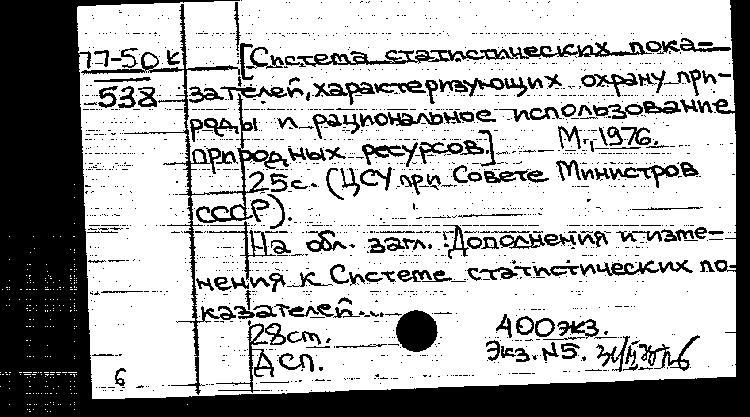 77-50к [Система статистических пока-
538 зателей, характеризующих охрану при-
роды и рациональное использование
природных ресурсов.] М., 1976.
25с. (ЦСУ при Совете Министров
СССР).
На обл. загл.: Дополнения и изме-
нения к Системе статистических по-
казателей...
28см. 400экз.
ДСП. Экз. №5.
6